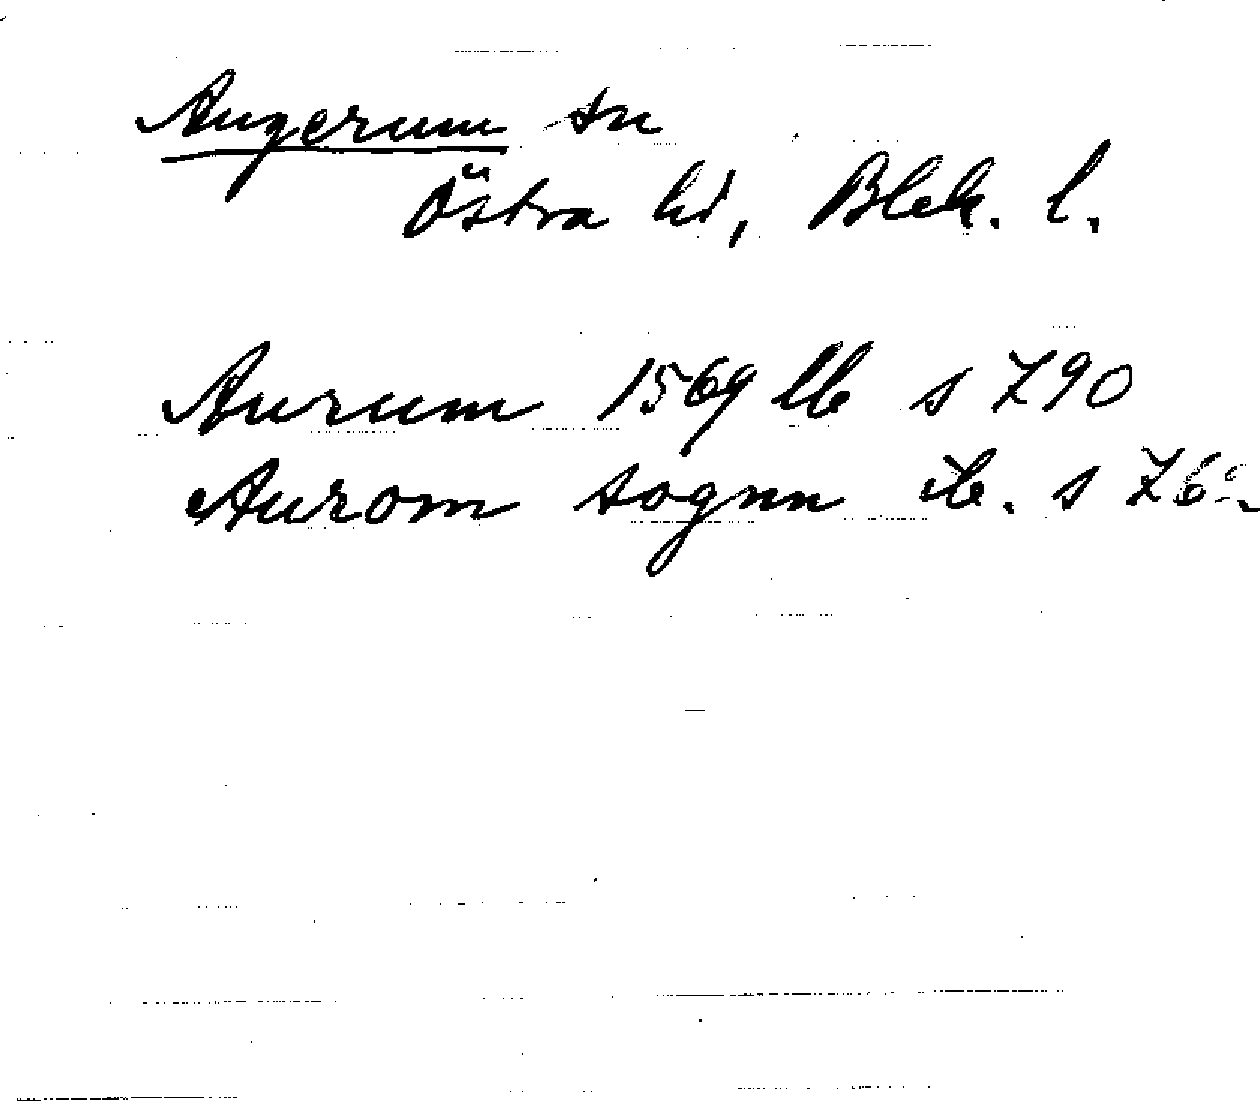 Augerum sn
Östra hd, Blek. l.
Aurum 1569 lb s 790
Aurom sognn ib. s